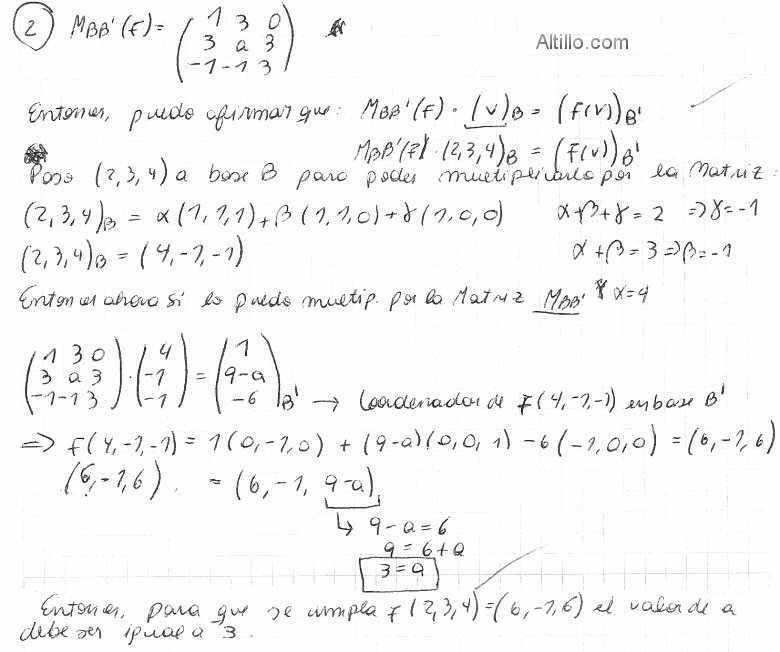 2 MBB'(f) = (1 3 0
3 a 3
-1 -1 3)
Altillo.com
Entonces, puedo afirmar que: MBB'(f) . (v)B = (f(v))B'
MBB'(f) . (2,3,4)B = (f(v))B'
Paso (2,3,4) a base B para poder multiplicarlo por la Matriz:
(2,3,4)B = α(1,1,1) + β(1,1,0) + γ(1,0,0) α+β+γ = 2 => γ=-1
(2,3,4)B = (4,-1,-1) α+β=3 => β=-1
Entonces ahora si lo puedo multip. por la Matriz MBB' α=4
(1 3 0
3 a 3
-1 -1 3) . (4
-1
-1) = (1
9-a
-6)B' → Coordenadas de f(4,-1,-1) en base B'
=> f(4,-1,-1) = 1(0,-1,0) + (9-a)(0,0,1) -6(-1,0,0) = (6,-1,6)
(6,-1,6) = (6,-1, 9-a)
↳ 9-a=6
9=6+a
3=a
Entonces, para que se cumpla f(2,3,4)=(6,-1,6) el valor de a
debe ser igual a 3.